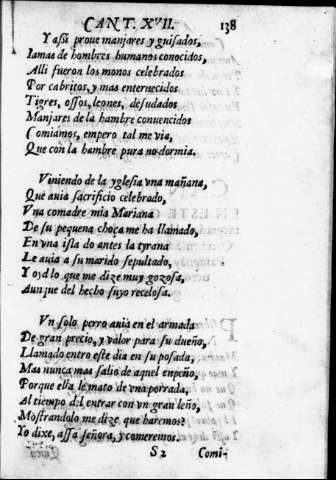 CANT. XVII. 138
Y assi proue manjares y guisados,
Iamas de hombres humanos conocidos,
Alli fueron los monos celebrados
Por cabritos, y mas enternecidos
Tigres, ossos, leones, desudados
Manjares de la hambre conuencidos
Comiamos, empero tal me via,
Que con la hambre pura no dormia.
Viniendo de la yglesia vna mañana,
Que auia sacrificio celebrado,
Vna comadre mia Mariana
De su pequena choça me ha llamado,
En vna isla do antes la tyrana
Le auia a su marido sepultado,
Y oyd lo que me dize muy gozosa,
Aunque del hecho suyo recelosa.
Vn solo perro auia en el armada
De gran precio, y valor para su dueño,
Llamado entro este dia en su posada,
Mas nunca mas salio de aquel enpeño,
Porque ella le mato de vna porrada,
Al tiempo del entrar con vn gran leño,
Mostrandolo me dize que haremos?
Yo dixe, assa señora, y comeremos.
S 2 Comi-